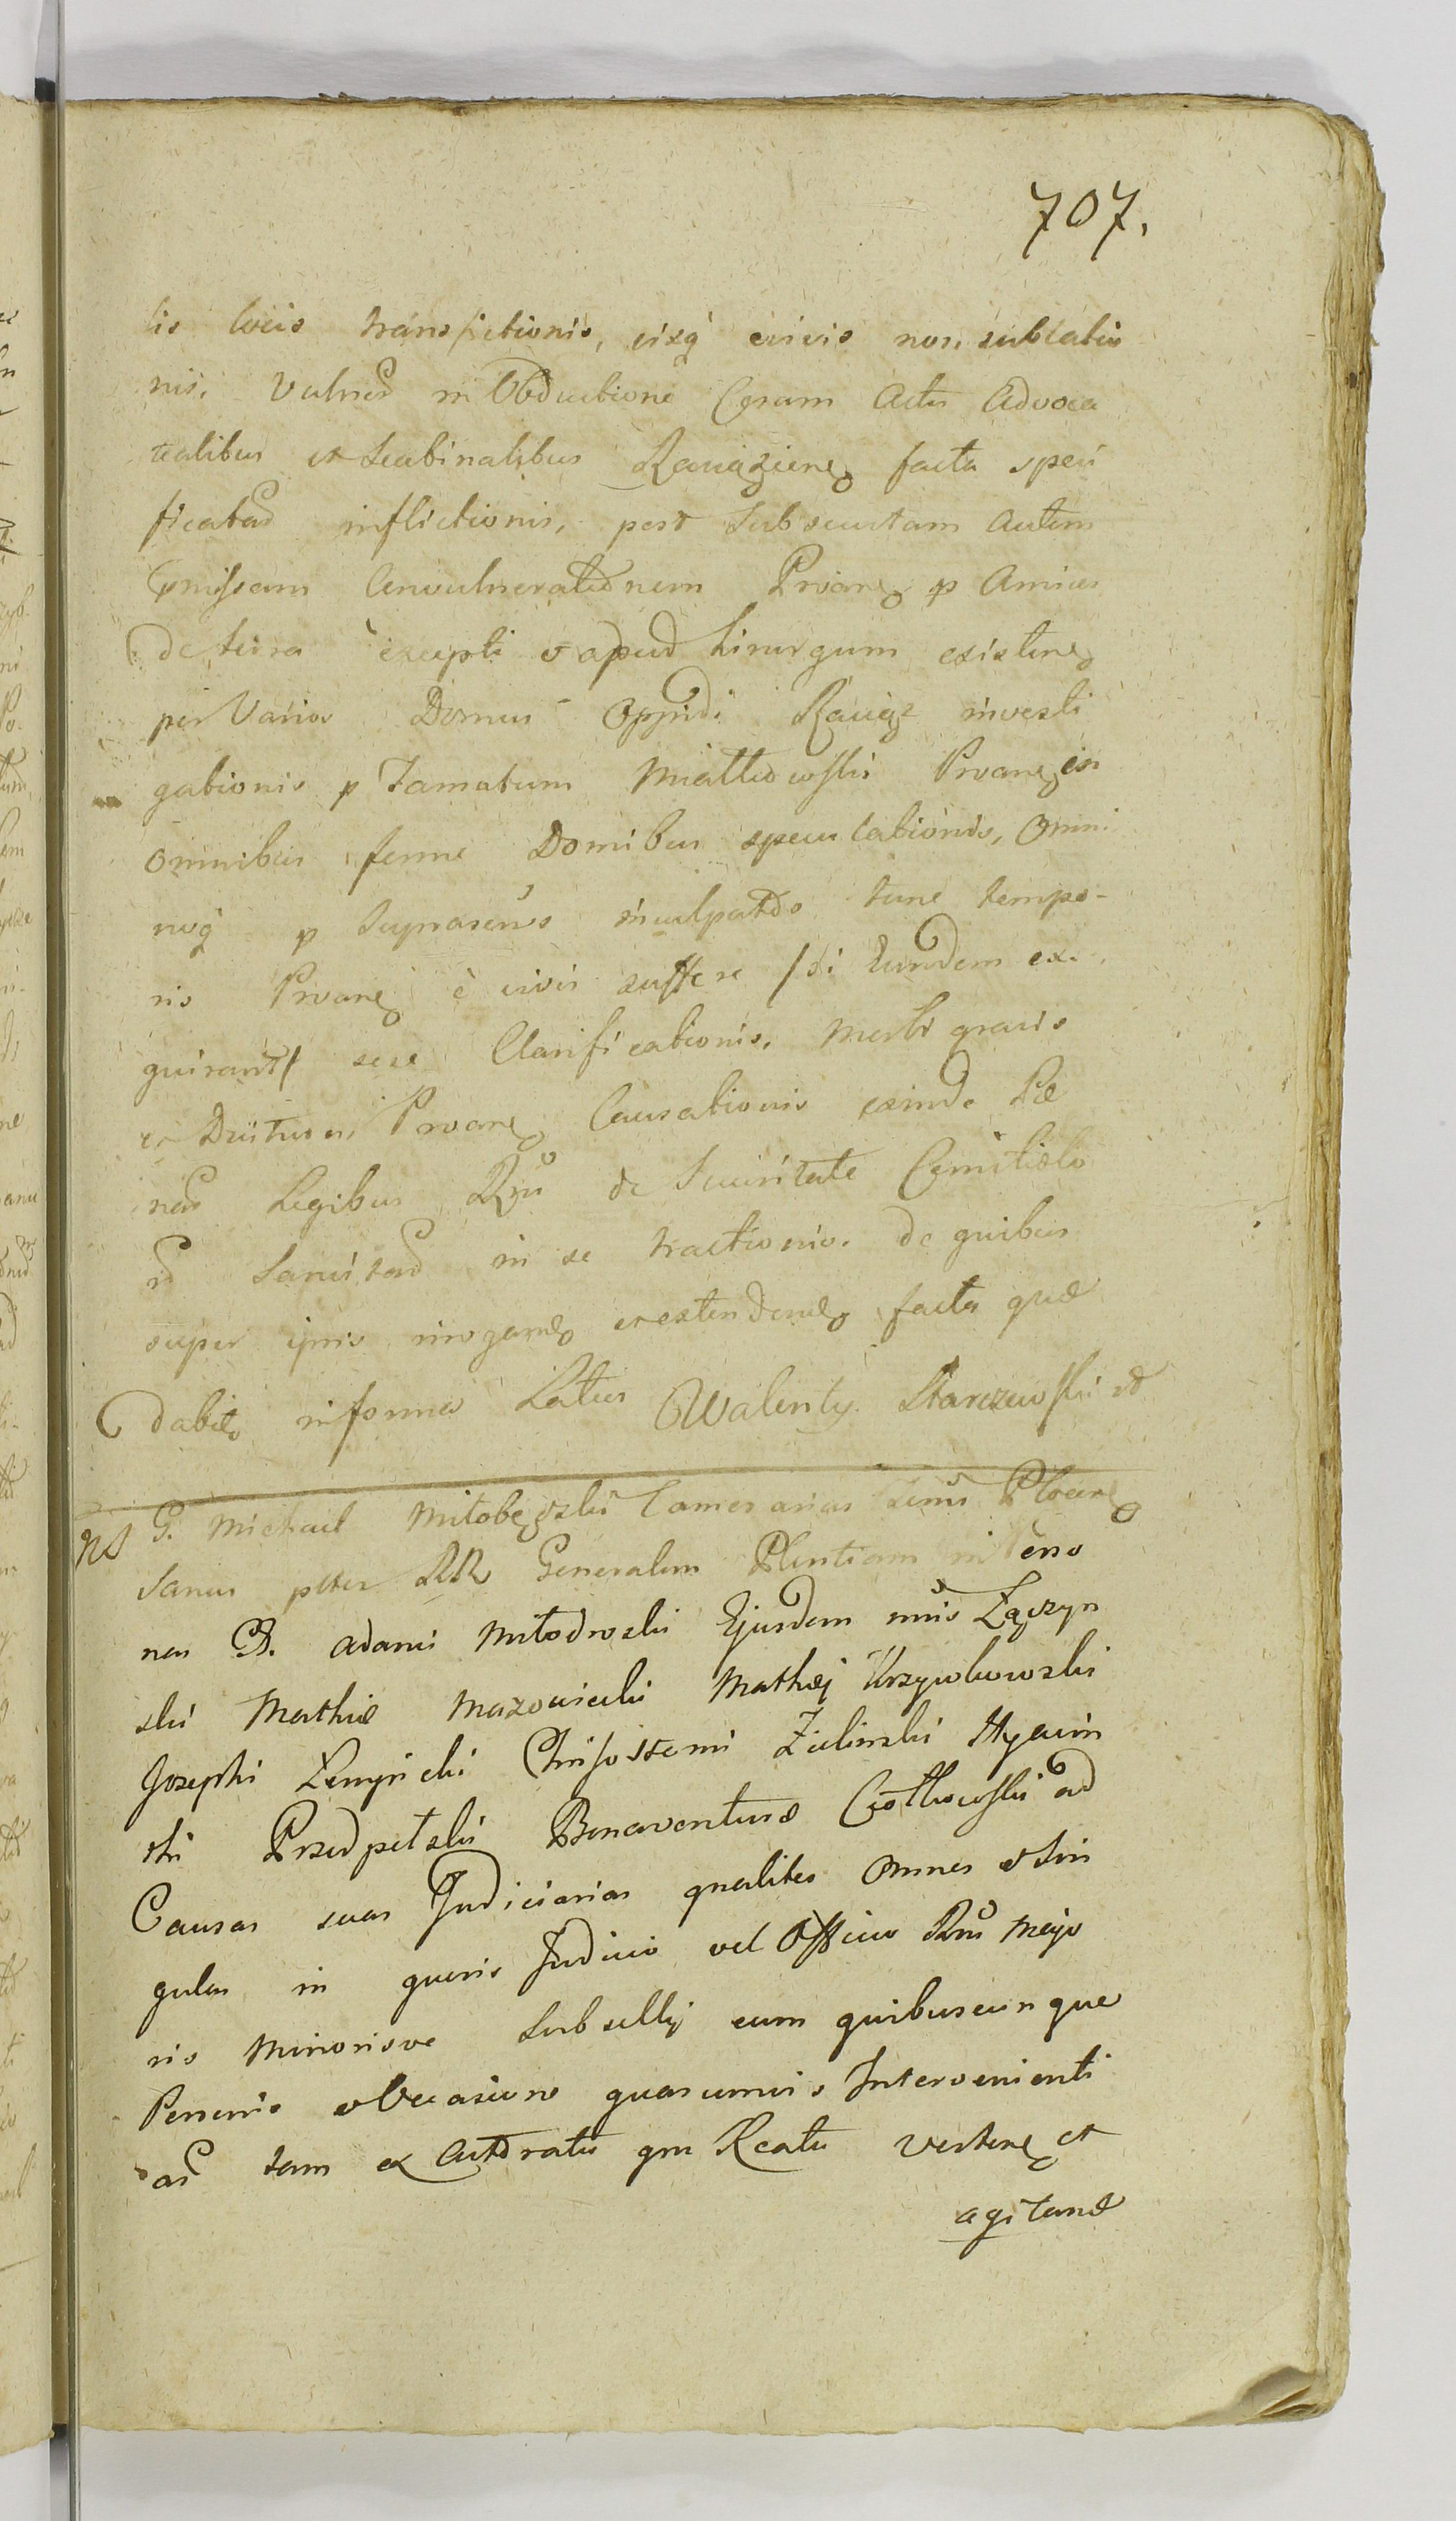 707.
lis locis transfictionis, eisq́ e vivis non sublatio
nis. Vulned in Obductione Coram Actis Advoca
tialibus et Scabinalibus Raciążiene facta speci
ficatad inflictionis, post Subsecutam autem
pmissam Convulnerationem Prvane p Amicos
de terra excepti et apud Chirurgum existene
per Varias Domus Oppidi Raciąz investi
gationis p Famatum Miałkowski Prvane in
omnibus ferme Domibus speculationis, omni
noq́ p inculpatos tunc tempo-
ris Prvane è vivis / si Eundem ex
quirant / sese Clarificationis, Morbi gravis
et Diuturni Prvane Causationis exinde Pæ
nas Legibus Rgni de Securitate
nd Sancitad in se tractionis. de quibus
super ijmis et extendene facta quæ
dabit informa Latius Walenty Starczewski
NS G. Michael Miłobęzski Camerarius Płocene
Sanus RR Generalem Plentiam in
nas G. Adami Młodroski Ejusdem nnis Łączyn
ski Mathiæ Mazowiecki Mathæj Krzywkowski
Josephi Zempicki Chrisostomi Zielinski Hyacin
thi Przedpełski Benaventuræ Ciółkowski ad
Causas suas Judiciarias gnaliter omnes et Sin
gulas in quovis Judicio vel Officio Rni Majo
ris Minorisve Subsellij cum quibuscunque
Personis et Occasione quarumvis Intervenienti
ad tam ex Actoratu qm Reatu vertene et
agitand